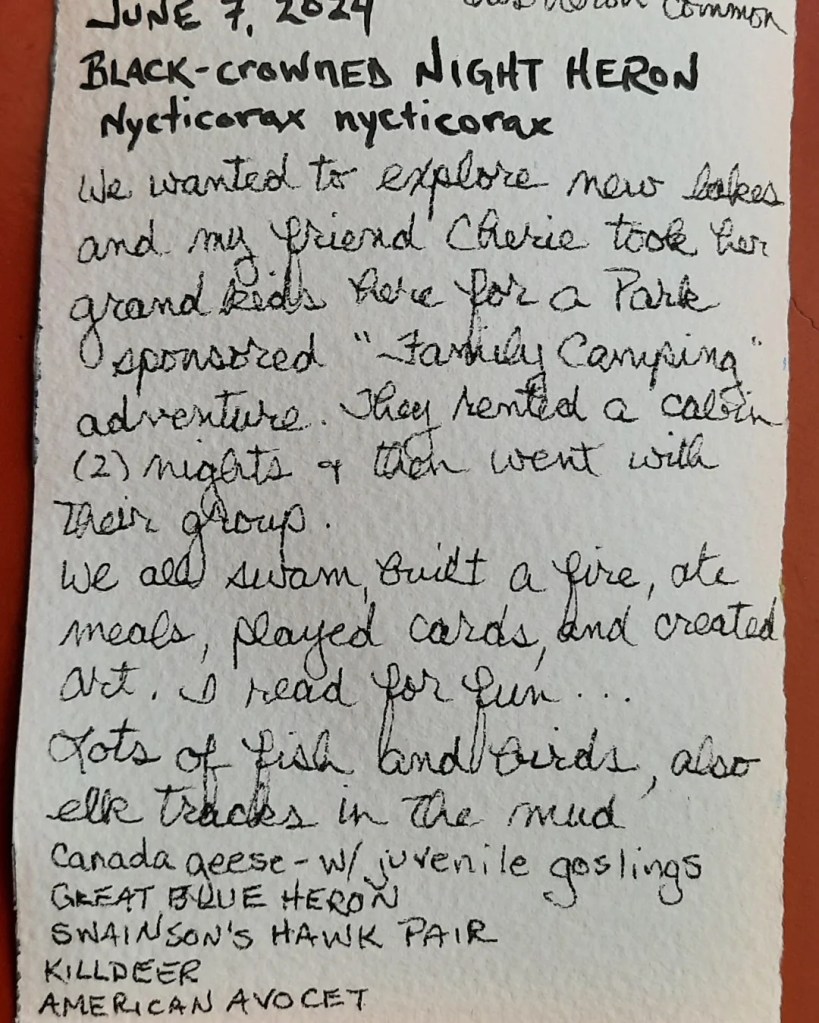 JUNE 7, 2024 Common
BLACK-CROWNED NIGHT HERON
Nycticorax nycticorax
We wanted to explore new lakes
and my friend Cherie took her
grandkids here for a Park
sponsored "Family Camping"
adventure. They rented a cabin
(2) nights & then went with
their group.
We all swam, built a fire, ate
meals, played cards, and created
art. I read for fun...
Lots of fish and birds, also
elk tracks in the mud
Canada geese - w/ juvenile goslings
GREAT BLUE HERON
SWAINSON'S HAWK PAIR
KILLDEER
AMERICAN AVOCET